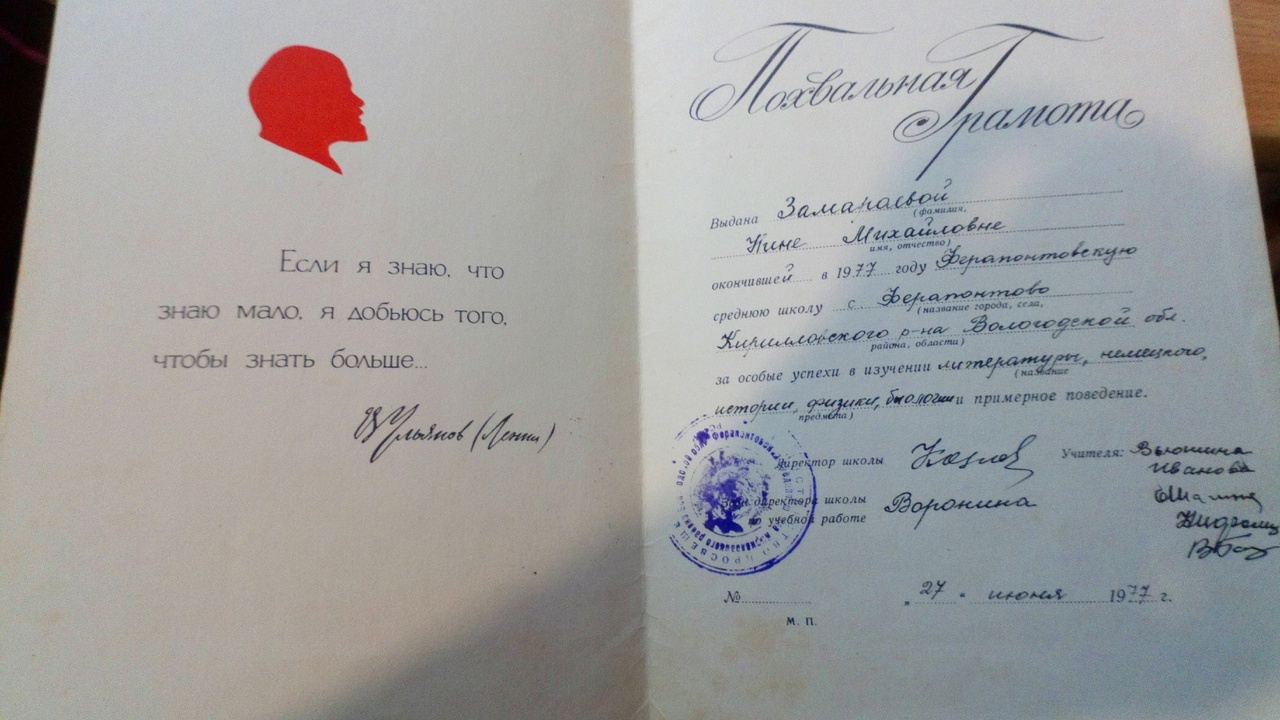 Если я знаю, что
знаю мало, я добьюсь того,
чтобы знать больше...
В Ульянов (Ленин)
Похвальная
Грамота
Выдана Замараевой
(фамилия,
Нине Михайловне
имя, отчество)
окончившей в 1977 году Ферапонтовскую
среднюю школу с. Ферапонтово
(название города, села,
Кирилловского р-на Вологодской обл.
района, области)
за особые успехи в изучении литературы, немецкого,
(название
истории, физики, биологии и примерное поведение.
предмета)
Директор школы Козлов Учителя: Вьюшина
Иванова
Зам. директора школы
по учебной работе Воронина
№
„27“ июня 1977 г.
М. П.